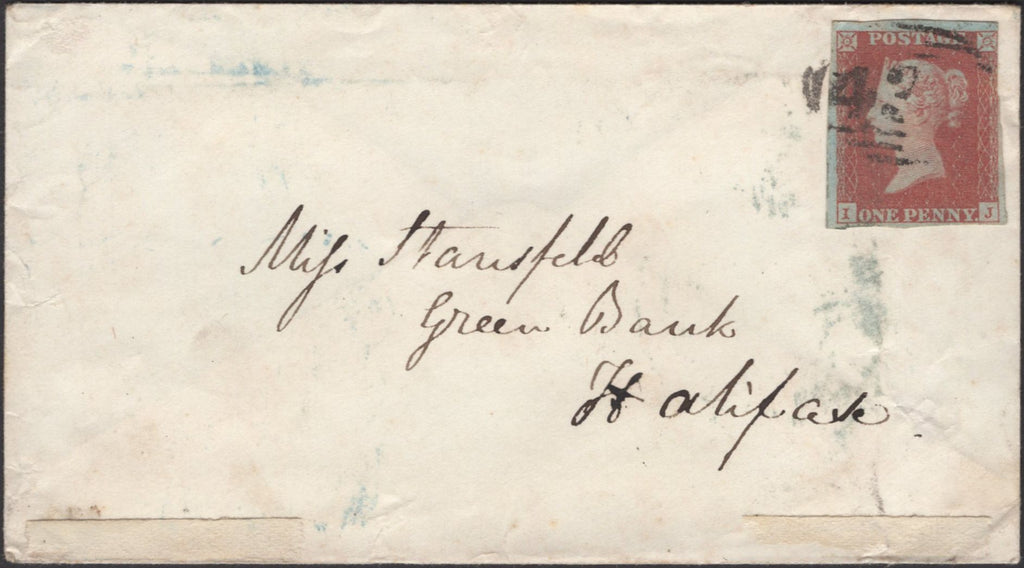 POSTAGE
I ONE PENNY. J
Miss Stansfeld
Green Bank
Halifax.